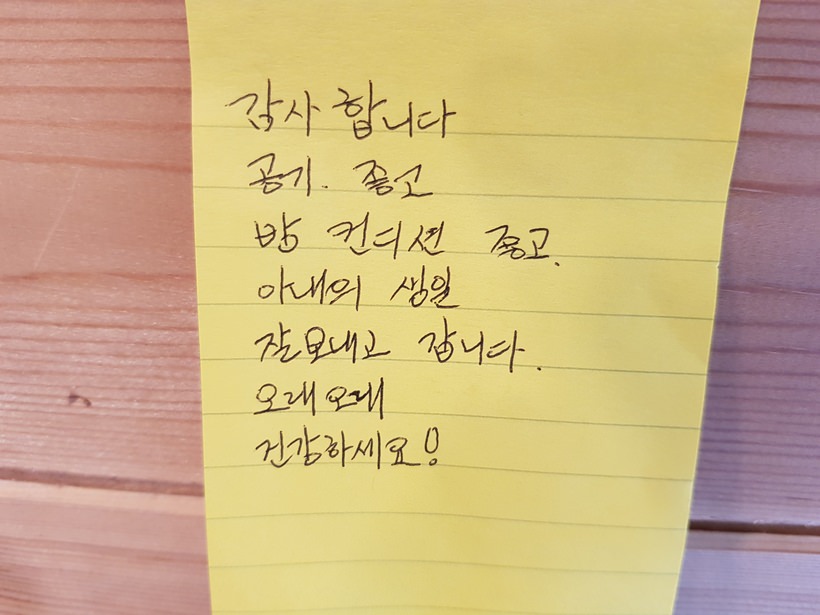 감사 합니다
공기. 좋고
방 컨디션 좋고.
아내의 생일
잘보내고 갑니다.
오래오래
건강하세요!